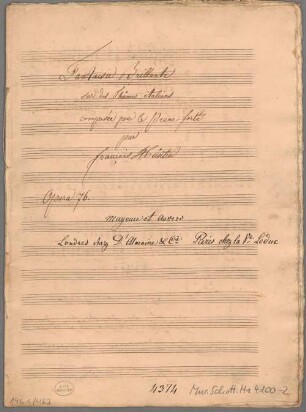 Fantaisie Brillante
sur des Thêmes Italiens
composée pour le Piano-forté
par
François Hünten
Opera 76.
Mayence et Anvers
Londres chez D'Almaine & Cº. Paris chez la Vve Leduc
4374 Mus. Schott. Ha 4100-2